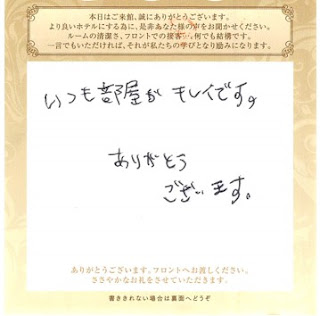 本日はご来館、誠にありがとうございます。
より良いホテルにする為に、是非あなた様の声をお聞かせください。
ルームの清潔さ、フロントでの接客…、何でも結構です。
一言でもいただければ、それが私たちの学びとなり励みになります。
いつも部屋が キレイです。
ありがとう
ございます。
ありがとうございます。フロントへお渡しください。
ささやかなお礼をさせていただきます。
書ききれない場合は裏面へどうぞ